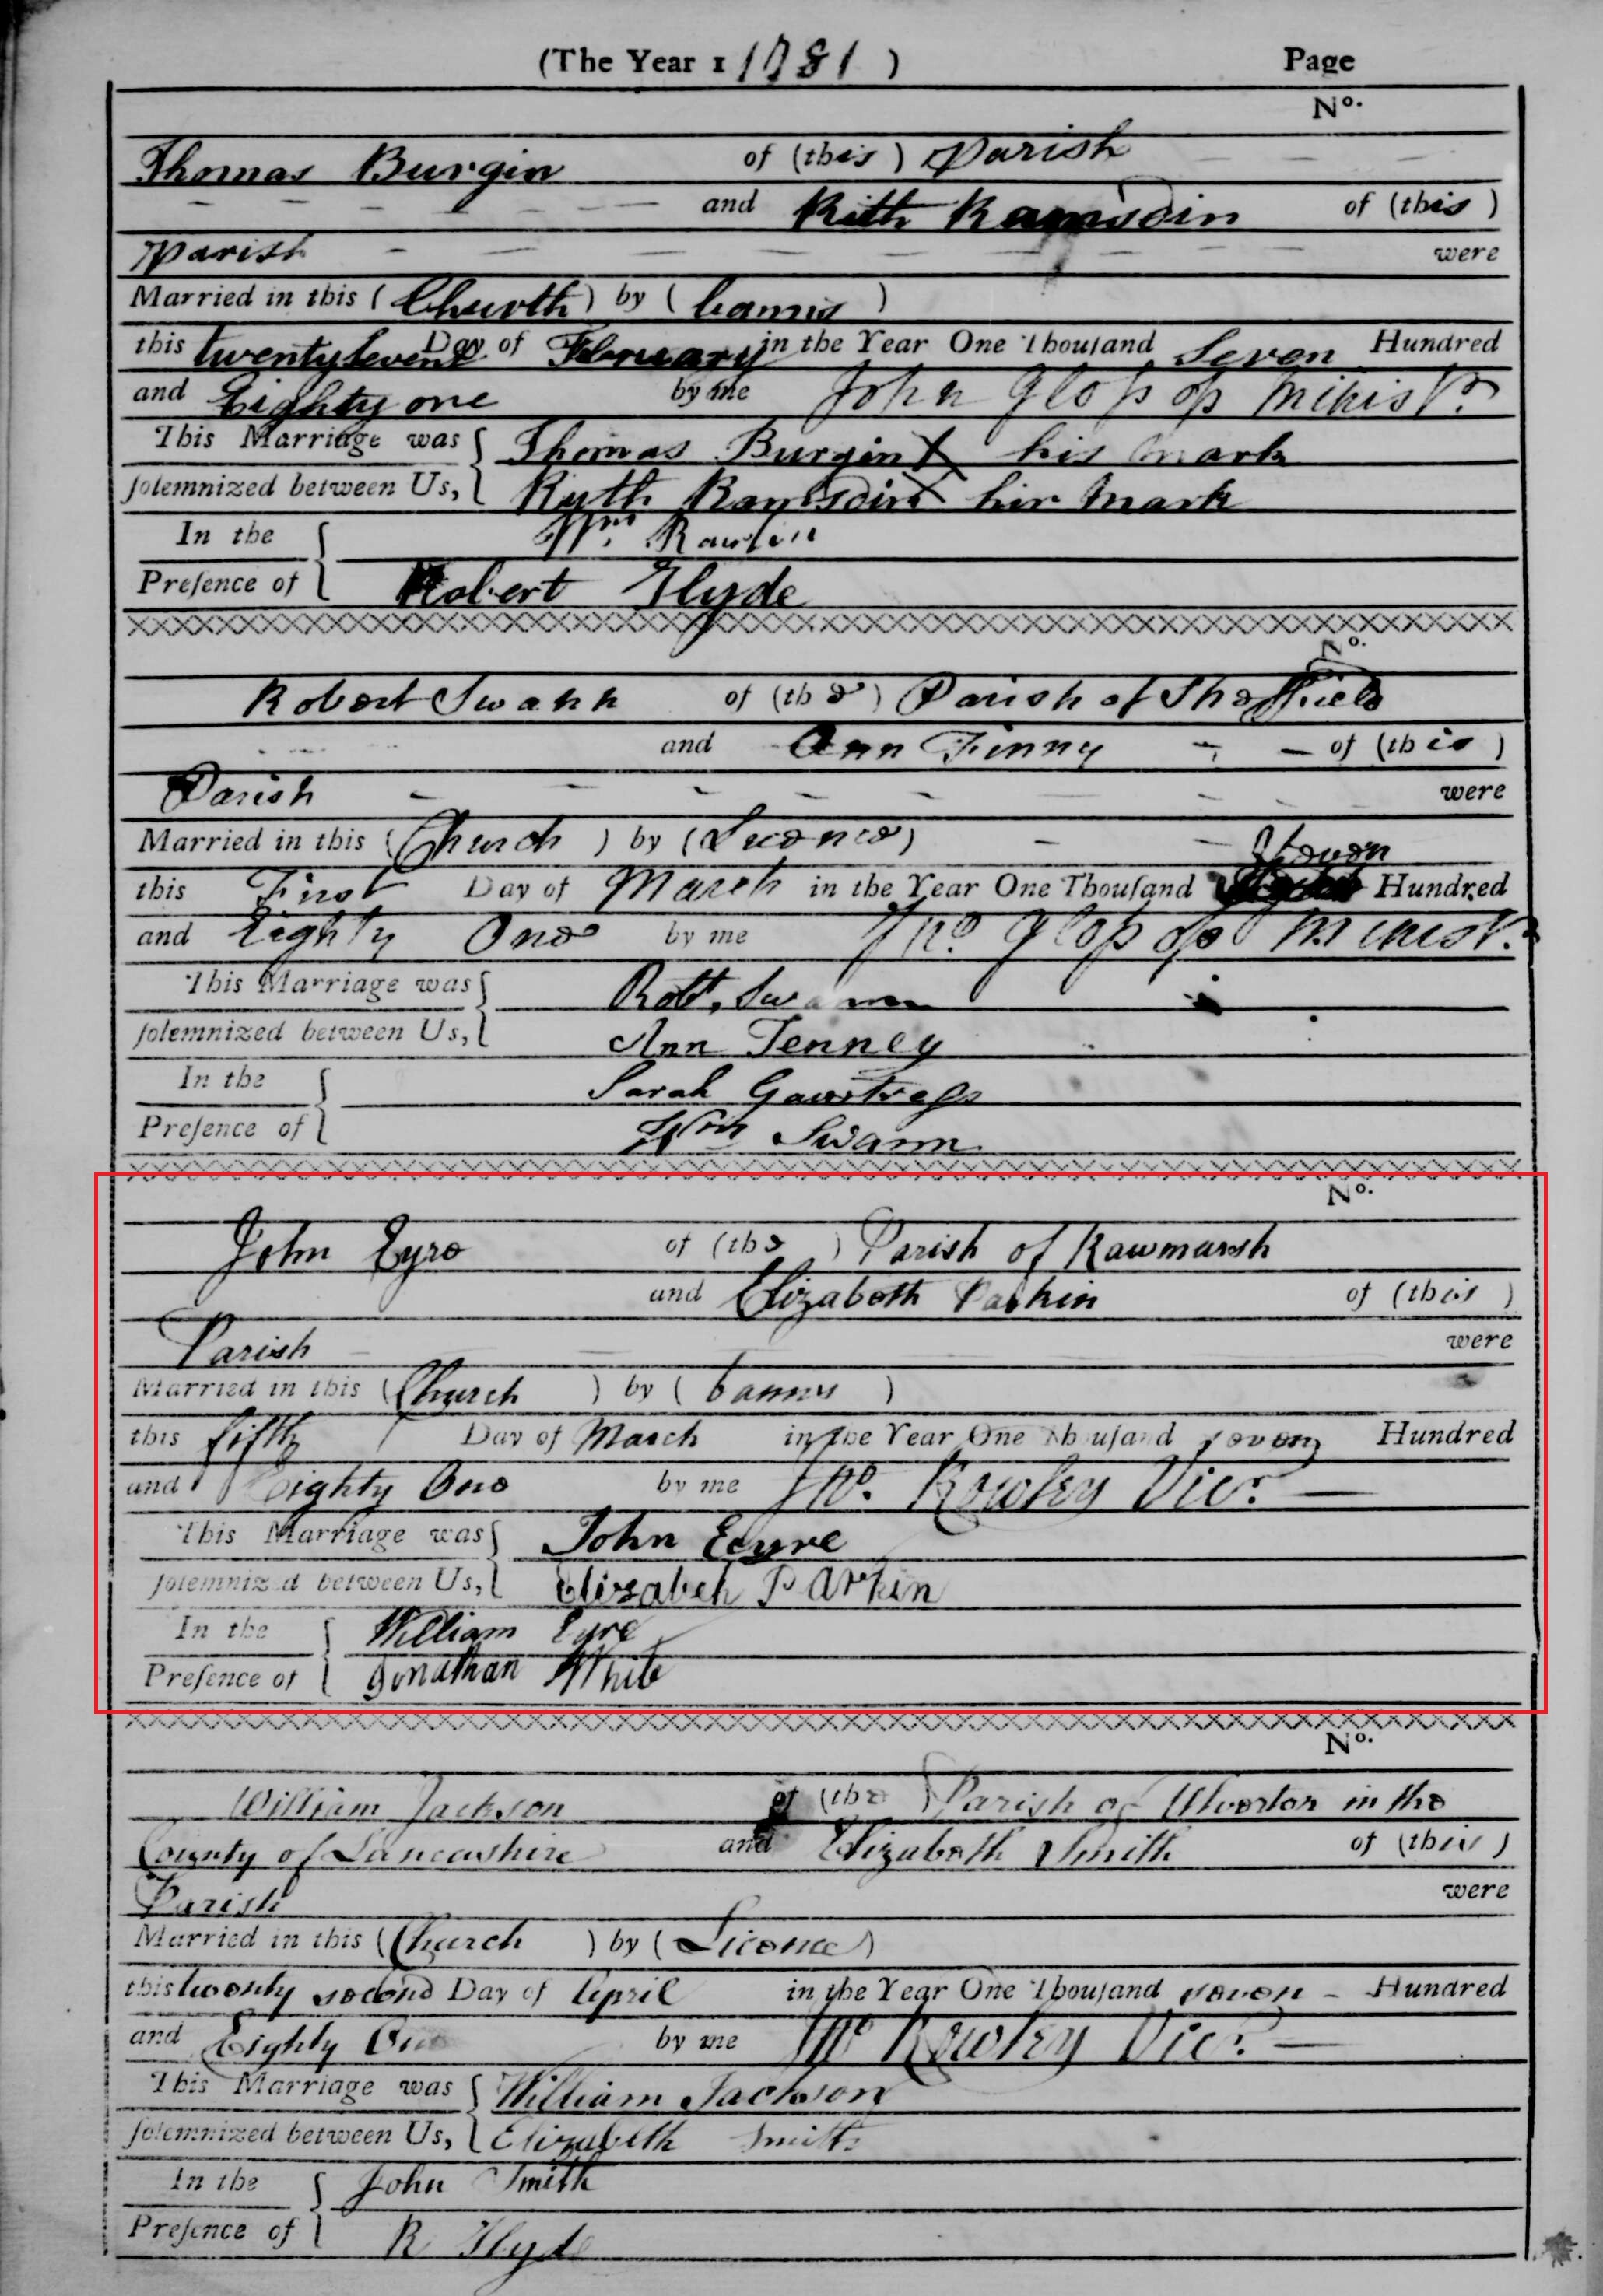 (The Year 1 1781 ) Page
No.
Thomas Burgin of (this) Parish
and Ruth Ramsdin of (this)
Parish were
Married in this (Church) by (banns)
this twenty seventh Day of February in the Year One Thousand Seven Hundred
and Eighty one by me John Glossop Ministr.
This Marriage was Thomas Burgin X his Mark
solemnized between Us, Ruth Ramsdin X hir Mark
In the Wm. Rawson
Presence of Robert Glyde
No.
Robert Swann of (the) Parish of Sheffield
and Ann Finny of (this)
Parish were
Married in this (Church) by (Licence)
this First Day of March in the Year One Thousand Seven Hundred
and Eighty One by me Jno. Glossop Ministr.
This Marriage was Robt. Swann
solemnized between Us, Ann Fenney
In the Sarah
Presence of Wm Swann
No.
John Eyre of (the) Parish of Rawmarsh
and Elizabeth Parkin of (this)
Parish were
Married in this (Church) by (banns)
this fifth Day of March in the Year One Thousand seven Hundred
and Eighty One by me Jno. Rowley Vicr.
This Marriage was John Eeyre
solemnized between Us, Elizabeh Parkin
In the William Eyre
Presence of Jonathan White
No.
William Jackson of (the) Parish of Ulverton in the
County of Lancashire and Elizabeth Smith of (this)
Parish were
Married in this (Church) by (Licence)
this twenty second Day of April in the Year One Thousand seven Hundred
and Eighty One by me Jno Rowley Vicr.
This Marriage was William Jackson
solemnized between Us, Elizabeth Smith
In the John Smith
Presence of R Glyde